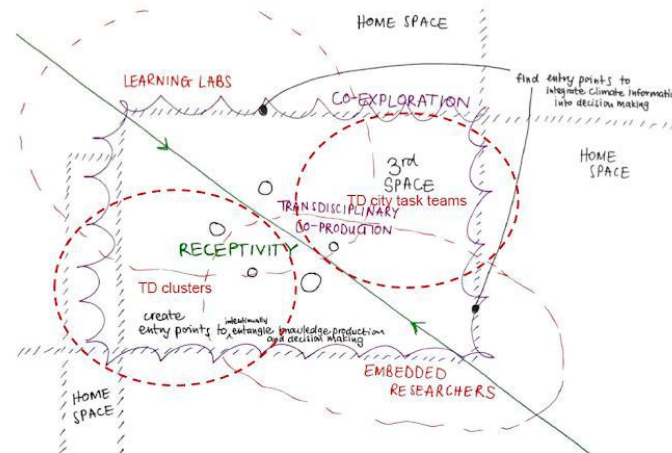 HOME SPACE
LEARNING LABS
CO-EXPLORATION
find entry points to
integrate climate informatio
into decision making
HOME
SPACE
3rd
SPACE
TD city task teams
TRANSDISCIPLINARY
CO-PRODUCTION
RECEPTIVITY
TD clusters
create
intentionally
entry points to entangle knowledge production
and decision making
EMBEDDED
RESEARCHERS
HOME
SPACE